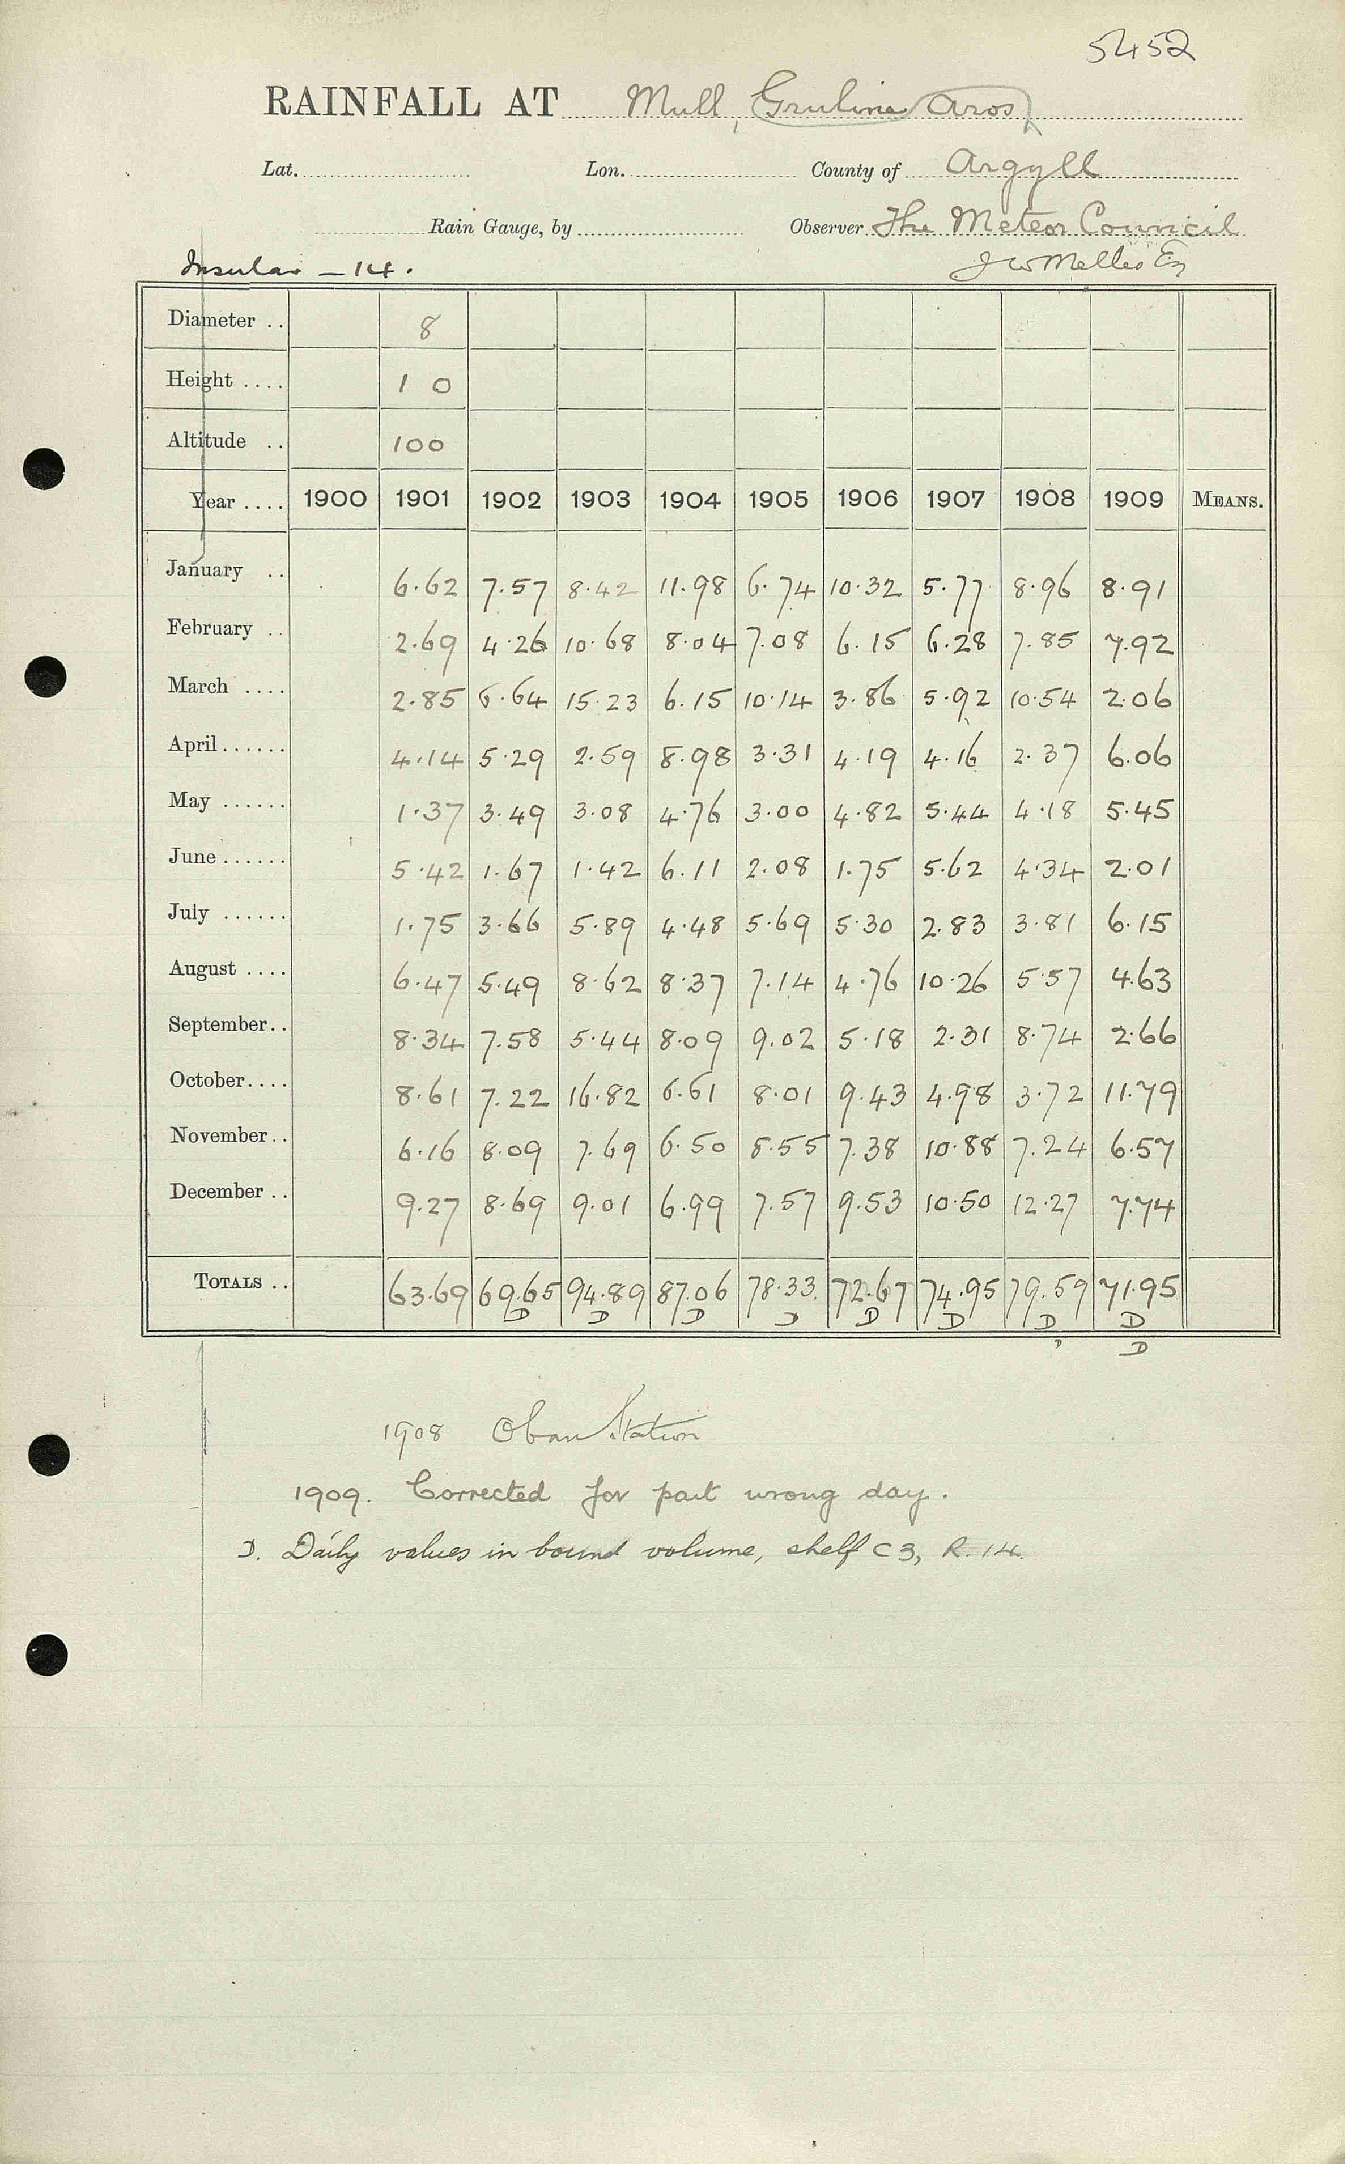 5452
RAINFALL AT Mull, Gruline Aros
Lat. Lon. County of Argyll
Rain Gauge, by Observer The Meteor Council
Insular – 14. J W Melles Esq
Diameter .. 8
Height .... 1 0
Altitude .. 100
Year .... 1900 1901 1902 1903 1904 1905 1906 1907 1908 1909 MEANS.
January .. 6.62 7.57 8.42 11.98 6.74 10.32 5.77 8.96 8.91
February .. 2.69 4.26 10.68 8.04 7.08 6.15 6.28 7.85 7.92
March .... 2.85 6.64 15.23 6.15 10.14 3.86 5.92 10.54 2.06
April...... 4.14 5.29 2.59 8.98 3.31 4.19 4.16 2.37 6.06
May ...... 1.37 3.49 3.08 4.76 3.00 4.82 5.44 4.18 5.45
June...... 5.42 1.67 1.42 6.11 2.08 1.75 5.62 4.34 2.01
July ...... 1.75 3.66 5.89 4.48 5.69 5.30 2.83 3.81 6.15
August .... 6.47 5.49 8.62 8.37 7.14 4.76 10.26 5.57 4.63
September.. 8.34 7.58 5.44 8.09 9.02 5.18 2.31 8.74 2.66
October.... 8.61 7.22 16.82 6.61 8.01 9.43 4.98 3.72 11.79
November.. 6.16 8.09 7.69 6.50 8.55 7.38 10.88 7.24 6.57
December .. 9.27 8.69 9.01 6.99 7.57 9.53 10.50 12.27 7.74
TOTALS .. 63.69 69.65 94.89 87.06 78.33 72.67 74.95 79.59 71.95
D D D D D D D D
D
1908 Oban Station
1909. Corrected for part wrong day.
D. Daily values in bound volume, shelf C3, R.14.